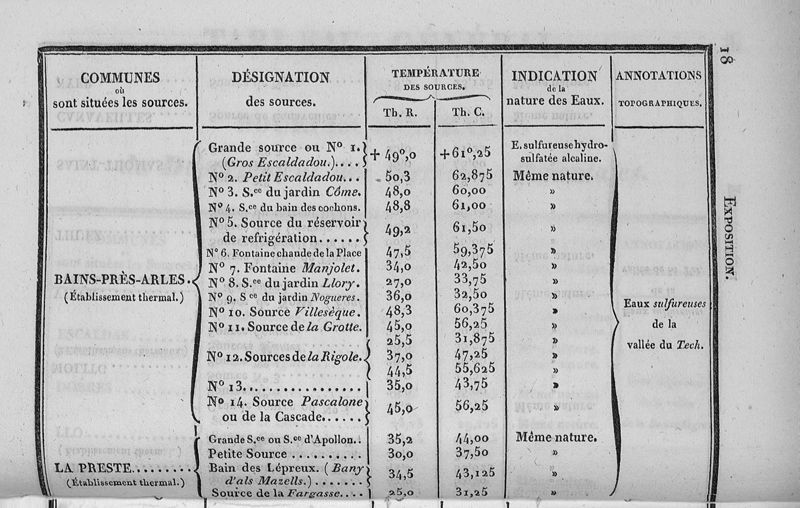 18
EXPOSITION.
COMMUNES
où
sont situées les sources.
DÉSIGNATION
des sources.
TEMPÉRATURE
DES SOURCES.
Th. R.
Th. C.
INDICATION
de la
nature des Eaux.
ANNOTATIONS
TOPOGRAPHIQUES.
BAINS-PRÈS-ARLES.
(Établissement thermal.)
Grande source ou N° 1. + 49°,0 +61°,25 E. sulfureuse hydro-
(Gros Escaldadou.).... sulfatée alcaline.
N° 2. Petit Escaldadou... 50,3 62,875 Même nature.
N° 3. S.ce du jardin Côme. 48,0 60,00 »
N° 4. S.ce du bain des cochons. 48,8 61,00 »
N° 5. Source du réservoir 49,2 61,50 »
de refrigération......
N° 6. Fontaine chaude de la Place 47,5 59,375 »
N° 7. Fontaine Manjolet. 34,0 42,50 »
N° 8. S.ce du jardin Llory. 27,0 33,75 »
N° 9. S.ce du jardin Nogueres. 36,0 32,50 »
N° 10. Source Villesèque. 48,3 60,375 »
N° 11. Source de la Grotte. 45,0 56,25 »
25,5 31,875
N° 12. Sources de la Rigole. 37,0 47,25 »
44,5 55,625 »
N° 13................. 35,0 43,75 »
N° 14. Source Pascalone 45,0 56,25 »
ou de la Cascade......
Eaux sulfureuses
de la
vallée du Tech.
LA PRESTE.........
(Établissement thermal.)
Grande S.ce ou S.ce d'Apollon.. 35,2 44,00 Même nature.
Petite Source .......... 30,0 37,50 »
Bain des Lépreux. (Bany 34,5 43,125 »
d'als Mazells.).......
Source de la Fargasse.... 25,0 31,25 »